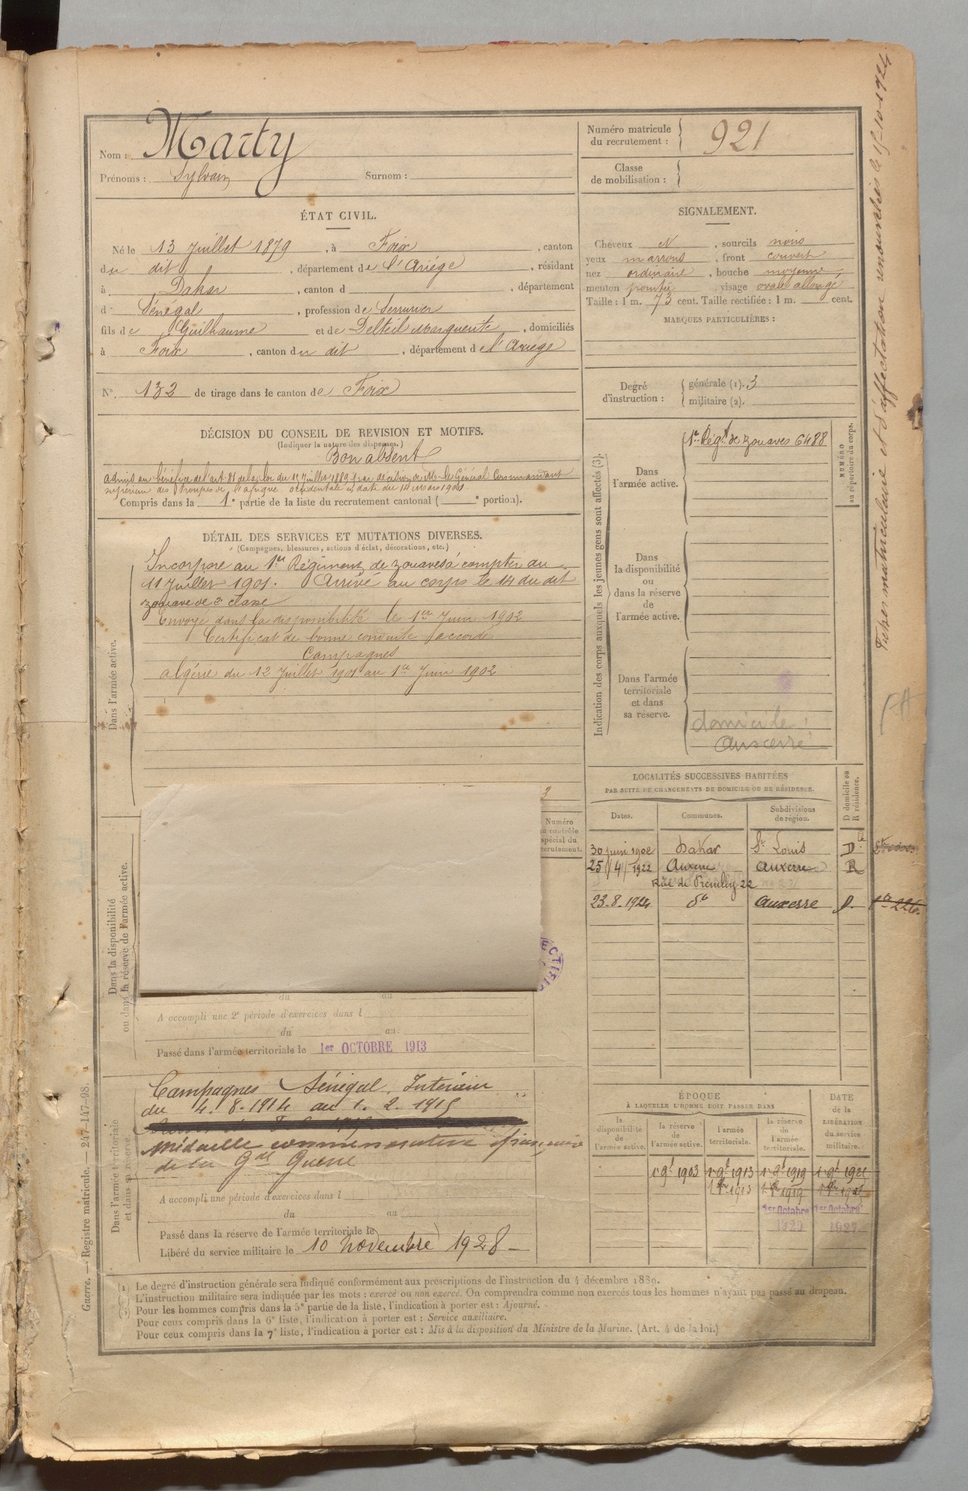 Nom : Marty
Prénoms : Sylvain Surnom :
Numéro matricule du recrutement : 921
Classe de mobilisation :
ÉTAT CIVIL.
Né le 13 Juillet 1879, à Foix, canton
du dit, département de l'Ariège, résidant
à Dakar, canton d , département
d Sénégal, profession de Serrurier
fils de Guilhaume et de Delteil Marguerite, domiciliés
à Foix, canton du dit, département de l'Ariège
N° 132 de tirage dans le canton de Foix
SIGNALEMENT.
Cheveux N, sourcils noirs
yeux marrons, front couvert
nez ordinaire, bouche moyenne
menton pointu, visage ovale allongé
Taille : 1 m. 73 cent. Taille rectifiée : 1 m. cent.
MARQUES PARTICULIÈRES :
Degré d'instruction : générale (1). 3
militaire (2).
DÉCISION DU CONSEIL DE REVISION ET MOTIFS.
(Indiquer la nature des dispenses.)
Bon absent
admis au bénéfice de l'art. 81 de la loi du 15 Juillet 1889 par décision de Mr le Général Commandant
supérieur des troupes de l'Afrique occidentale en date du 1901
Compris dans la 1e partie de la liste du recrutement cantonal ( portion).
DÉTAIL DES SERVICES ET MUTATIONS DIVERSES.
(Campagnes, blessures, actions d'éclat, décorations, etc.)
Dans l'armée active.
Incorporé au 1er Régiment de zouaves à compter du
11 Juillet 1901. Arrivé au corps le 14 du dit
zouave de 2e classe
Envoyé dans la disponibilité le 1er Juin 1902
Certificat de bonne conduite accordé
Campagnes
Algérie du 12 Juillet 1901 au 1er Juin 1902
Indication des corps auxquels les jeunes gens sont affectés (3).
NUMÉRO au répertoire du corps.
Dans l'armée active.
1er Régt de zouaves 6488
Dans la disponibilité ou dans la réserve de l'armée active.
Dans l'armée territoriale et dans sa réserve.
domicile :
Auxerre
LOCALITÉS SUCCESSIVES HABITÉES
PAR SUITE DE CHANGEMENTS DE DOMICILE OU DE RÉSIDENCE.
Dates. Communes. Subdivisions de région. D domicile ou R résidence.
30 juin 1902 Dakar St Louis D
25/4/1922 Auxerre Auxerre R
22
23.8.1924 do Auxerre D.
Numéro au contrôle spécial du recrutement.
Dans la disponibilité ou dans la réserve de l'armée active.
du au
A accompli une 2e période d'exercices dans l
du au
Passé dans l'armée territoriale le 1er OCTOBRE 1913
Dans l'armée territoriale et dans sa réserve.
Campagnes Sénégal Intérieur
du 4.8.1914 au 1.2.1915
Médaille commémorative française
de la Gde Guerre
A accompli une période d'exercices dans l
du au
Passé dans la réserve de l'armée territoriale le
Libéré du service militaire le 10 Novembre 1928
ÉPOQUE
À LAQUELLE L'HOMME DOIT PASSER DANS
DATE de la LIBÉRATION du service militaire.
la disponibilité de l'armée active. la réserve de l'armée active. l'armée territoriale. la réserve de l'armée territoriale.
1903 1913 1919
1er Octobre 1er Octobre
Le degré d'instruction générale sera indiqué conformément aux prescriptions de l'instruction du 4 décembre 1889.
L'instruction militaire sera indiquée par les mots : exercé ou non exercé. On comprendra comme non exercés tous les hommes n'ayant pas passé au drapeau.
Pour les hommes compris dans la 5e partie de la liste, l'indication à porter est : Ajourné.
Pour ceux compris dans la 6e liste, l'indication à porter est : Service auxiliaire.
Pour ceux compris dans la 7e liste, l'indication à porter est : Mis à la disposition du Ministre de la Marine. (Art. 4 de la loi.)
Guerre. — Registre matricule. — 247-147-98.
Fiches matriculaire et d'affectation renouvelées le 15-10-1924